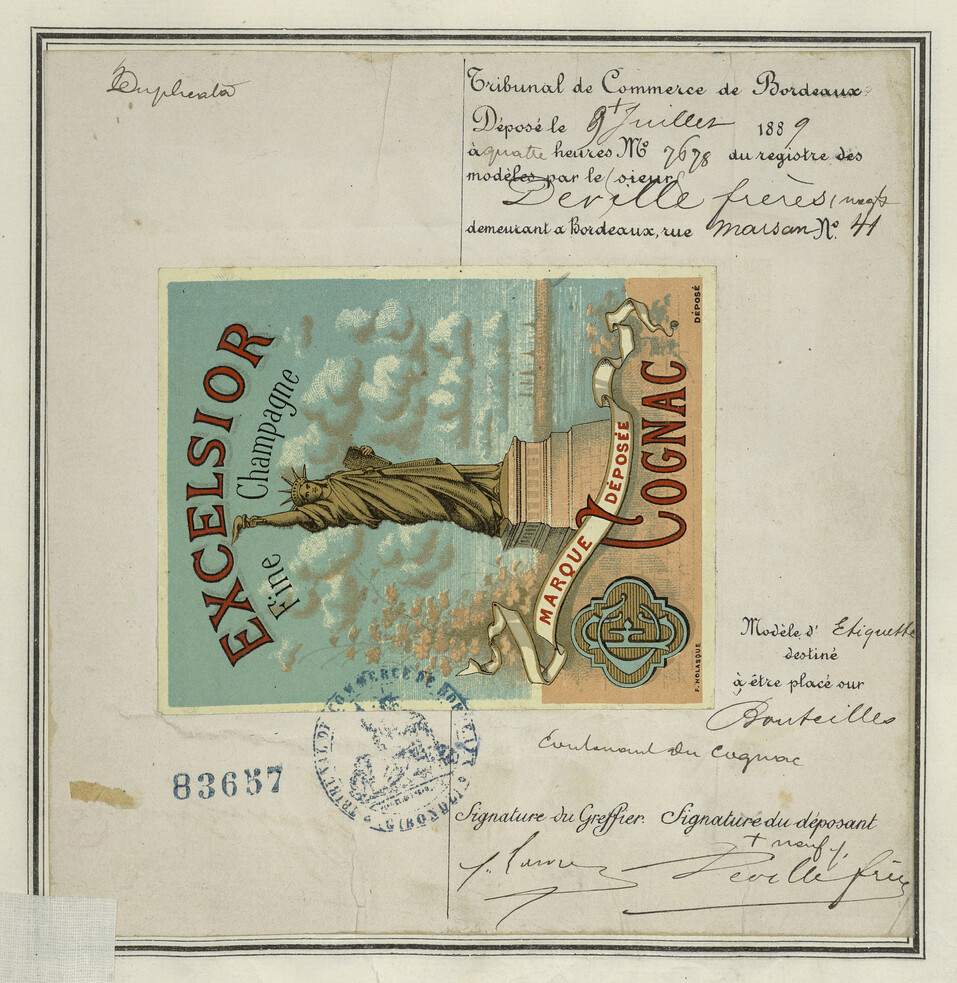 Duplicata
Tribunal de Commerce de Bordeaux
Déposé le 9+ Juillet 1889
à quatre heures No 7678 du registre des
modèles par le sieur
Deville frères, negts
demeurant a Bordeaux, rue Marsan No. 41
EXCELSIOR
Fine Champagne
MARQUE DÉPOSÉE
COGNAC
F. NOLASQUE
DÉPOSÉ
Modèle d' Etiquette
destiné
à être placé sur
Bouteilles
Contenant du Cognac
TRIBUNAL DE COMMERCE DE BORDEAUX
(GIRONDE)
83657
Signature du Greffier. Signature du déposant
+ neuf
Deville frères